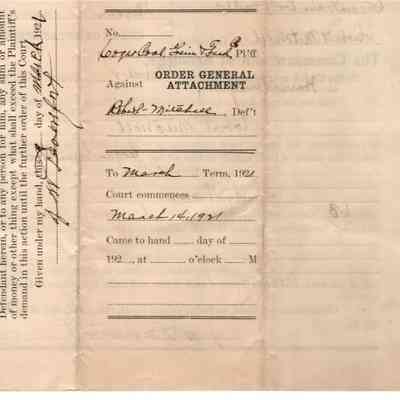 No.
Coger Coal, Grain & Feed Co Pl'tff
Against
ORDER GENERAL
ATTACHMENT
Robert Mitchell Def't
To March Term, 1921
Court commences
March 14, 1921
Came to hand ___ day of
192__, at ___ o'clock ___ M
Defendant herein, or to any person for him, any sum or amount
of money or other thing except what shall exceed the Plaintiff's
demand in this action until the further order of this Court
Given under my hand, this day of March 1921
J. W.